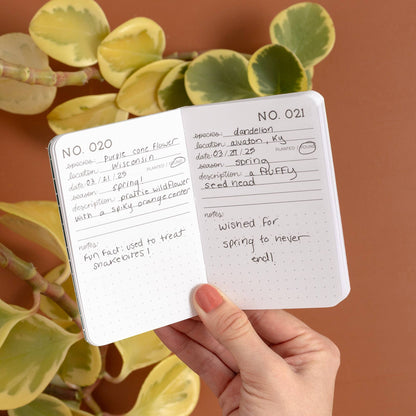 NO. 020
species: Purple cone flower
location: Wisconsin
date: 03/21/25 PLANTED / FOUND
season: spring!
description: prairie wildflower
with a spiky orange center
notes:
Fun Fact: used to treat
snakebites!
NO. 021
species: dandelion
location: alvaton, KY
date: 03/21/25 PLANTED / FOUND
season: spring
description: a fluffy
seed head
notes:
wished for
spring to never
end!